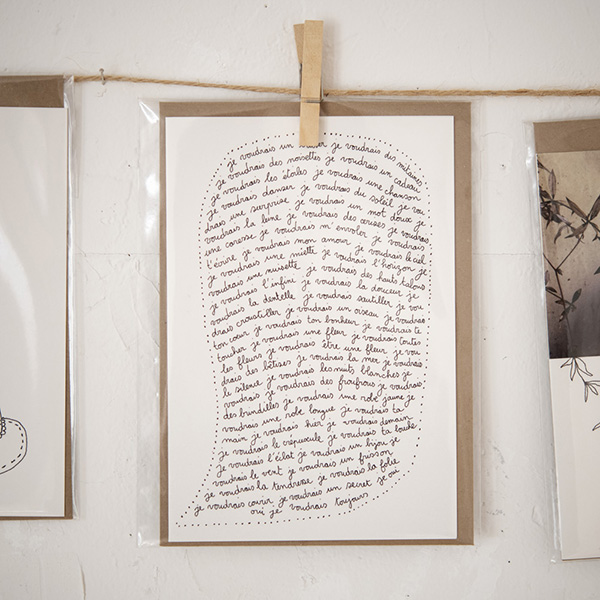 je voudrais un je voudrais des mitaines
je voudrais des noisettes je voudrais un cadeau
je voudrais les étoiles je voudrais une chanson
je voudrais danser je voudrais du soleil je vou
drais une surprise je voudrais un mot doux je
voudrais la lune je voudrais des cerises je voudrais
une caresse je voudrais m'envoler je voudrais
t'écrire je voudrais mon amour je voudrais le ciel
je voudrais une miette je voudrais l'horizon je
voudrais une noisette je voudrais des hauts talons
je voudrais l'infini je voudrais la douceur je
voudrais la dentelle je voudrais sautiller je vou
drais croustiller je voudrais un oiseau je voudrais
ton cœur je voudrais ton bonheur je voudrais te
toucher je voudrais une fleur je voudrais toutes
les fleurs je voudrais être une fleur je vou
drais des bêtises je voudrais la mer je voudrais
le silence je voudrais les nuits blanches je
voudrais je voudrais des froufrous je voudrais
des brindilles je voudrais une robe jaune je
voudrais une robe longue je voudrais ta
main je voudrais hier je voudrais demain
je voudrais le crépuscule je voudrais ta bouche
je voudrais l'éclat je voudrais un bijou je
voudrais le vent je voudrais un frisson
je voudrais la tendresse je voudrais la folie
je voudrais courir je voudrais un secret je oui
oui je voudrais toujours